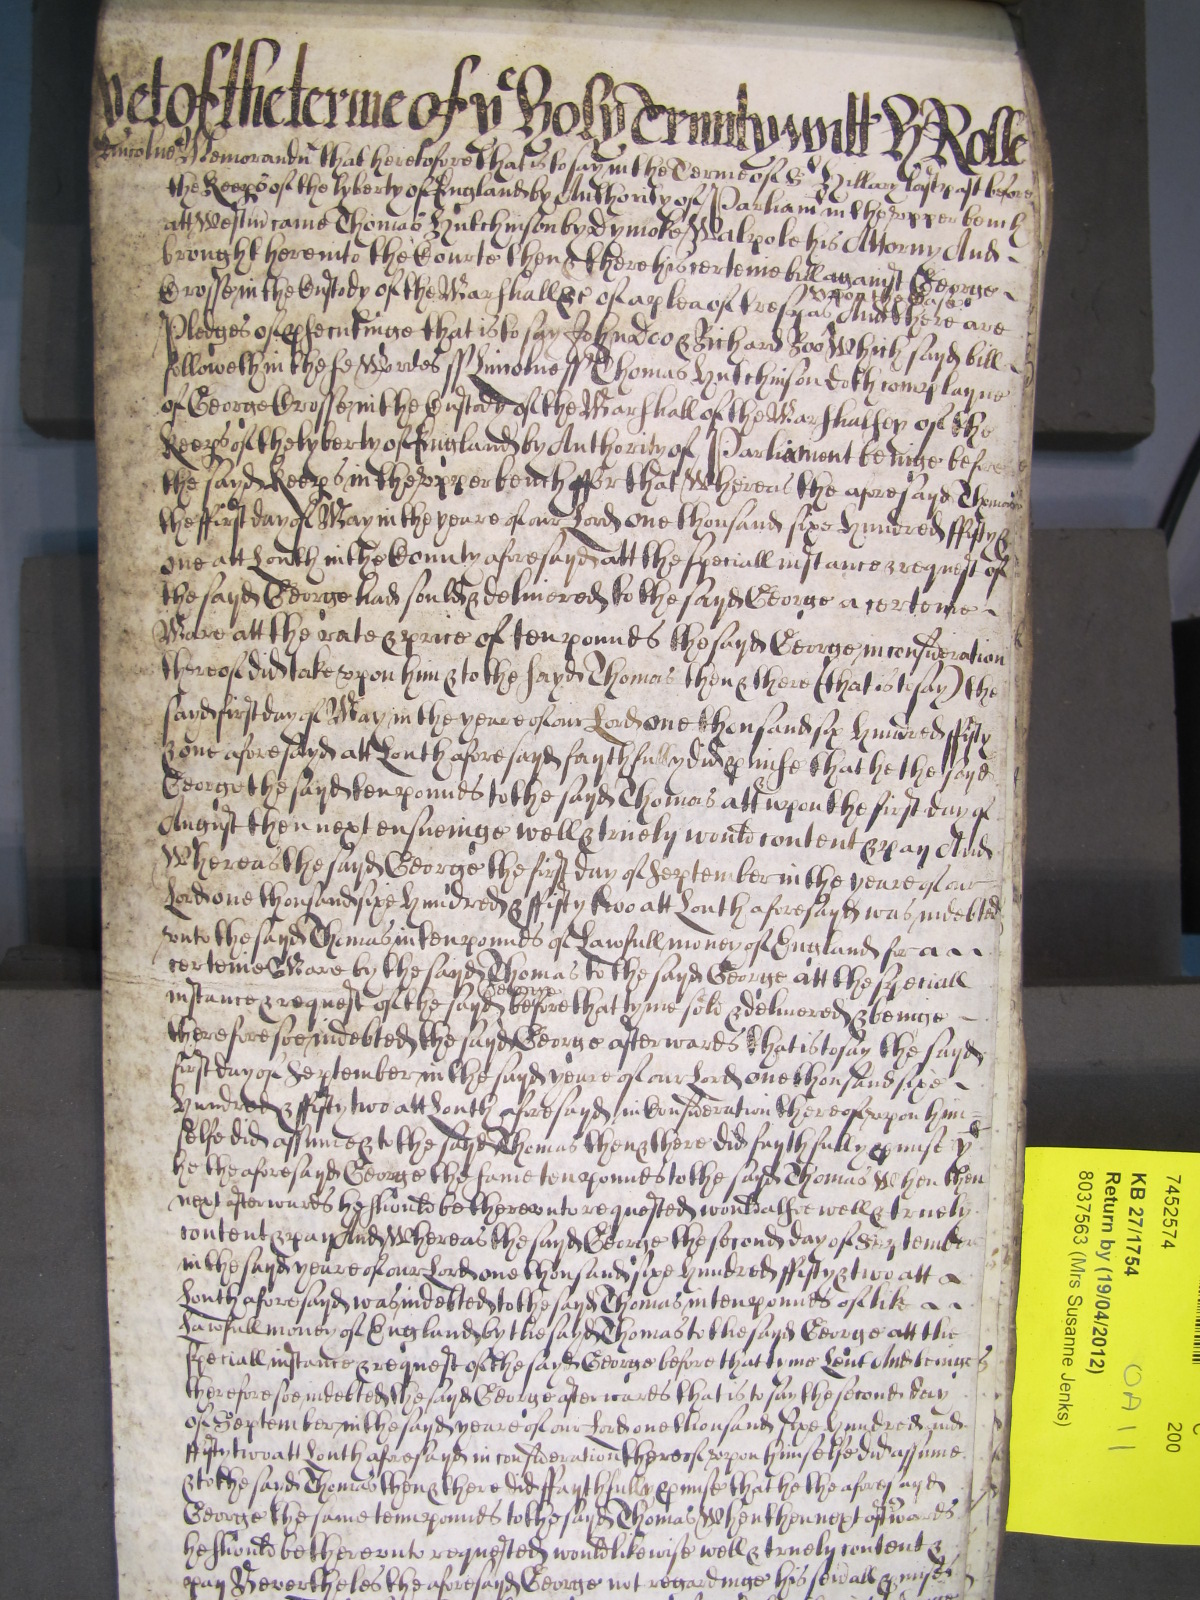 yet of the terme of ye Holy Trinity witt H Rolle
Lincolne Memorandu that heretofore that is to say in the Terme of St Hillary last past before
the Keeps of the lyberty of England by Authority of Parliamt in the upper bench
att Westm came Thomas Hutchinson by Dymoke Walpole his Attorny And
brought here into the Courte then & there his certeine bill against George
Crosse in the Custody of the Marshall &c of a plea of trespas upon the Case And there are
Pledges of psecutinge that is to say John Doo & Richard Roo Which sayd bill
followeth in these Wordes ss Lincolne ss Thomas Hutchinson doth complayne
of George Crosse in the Custody of the Marshall of the Marshalsey of the
Keeps of the lyberty of England by Authority of Parliament beinge before
the sayd Keeps in the upper bench ffor that Whereas the aforesayd Thomas
the ffirst day of May in the yeare of our Lord one thousand sixe hundred ffifty &
one att Louth in the County aforesayd att the speciall instance & request of
the sayd George had sould & delivered to the sayd George a certeine
Ware att the rate & price of ten pounds the sayd George in consideration
thereof did take upon him & to the sayd Thomas then & there (that is to say) the
sayd first day of May in the yeare of our Lord one thousand six hundred ffifty
& one aforesayd att Louth aforesayd faythfully did pmise that he the sayd
George the sayd ten pounds to the sayd Thomas att upon the first day of
August then next ensueinge well & truely would content & pay And
Whereas the sayd George the first day of September in the yeare of our
Lord one thousand sixe hundred & ffifty two att Louth aforesayd was indebted
unto the sayd Thomas in ten pounds of Lawfull money of England for a
certeine Ware by the sayd Thomas to the sayd George att the speciall
instance & request of the sayd George before that tyme sold & delivered & beinge
therefore soe indebted the sayd George afterwards that is to say the sayd
first day of September in the sayd yeare of our Lord one thousand sixe
hundred & ffifty two att Louth aforesayd in Consideration thereof upon him
selfe did assume & to the sayd Thomas then & there did faythfully pmise yt
he the aforesayd George the same ten pounds to the sayd Thomas When then
next afterwards he should be thereunto requested would alsoe well & truely
content & pay And Whereas the sayd George the second day of September
in the sayd yeare of our Lord one thousand sixe hundred ffifty & two att
Louth aforesayd was indebted to the sayd Thomas in ten pounds of like
Lawfull money of England by the sayd Thomas to the sayd George att the
speciall instance & request of the sayd George before that tyme Lent And beinge
therefore soe indebted the sayd George afterwards that is to say the second day
of September in the sayd yeare of our Lord one thousand sixe hundred and
ffifty two att Louth aforesayd in consideration thereof upon himselfe did assume
& to the sayd Thomas then & there did ffaythfully pmise that he the aforesayd
George the same tenn pounds to the sayd Thomas When then next aftwards
he should be thereunto requested would likewise well & truely content &
pay Neverthelesse the aforesayd George not regardinge his sevall pmises
7452574
200
KB 27/1754
Return by (19/04/2012)
8037563 (Mrs Susanne Jenks)
OA 11